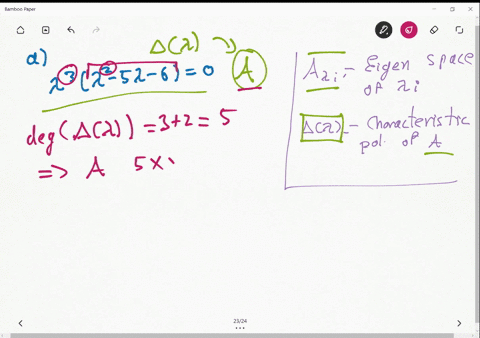 Bamboo Paper
Δ(λ)
a)
λ³(λ²-5λ-6)=0
A
deg(Δ(λ))=3+2=5
=> A 5×
Aλi :- Eigen space
of λi
Δ(λ) - Characteristic
pol. of A
23/24